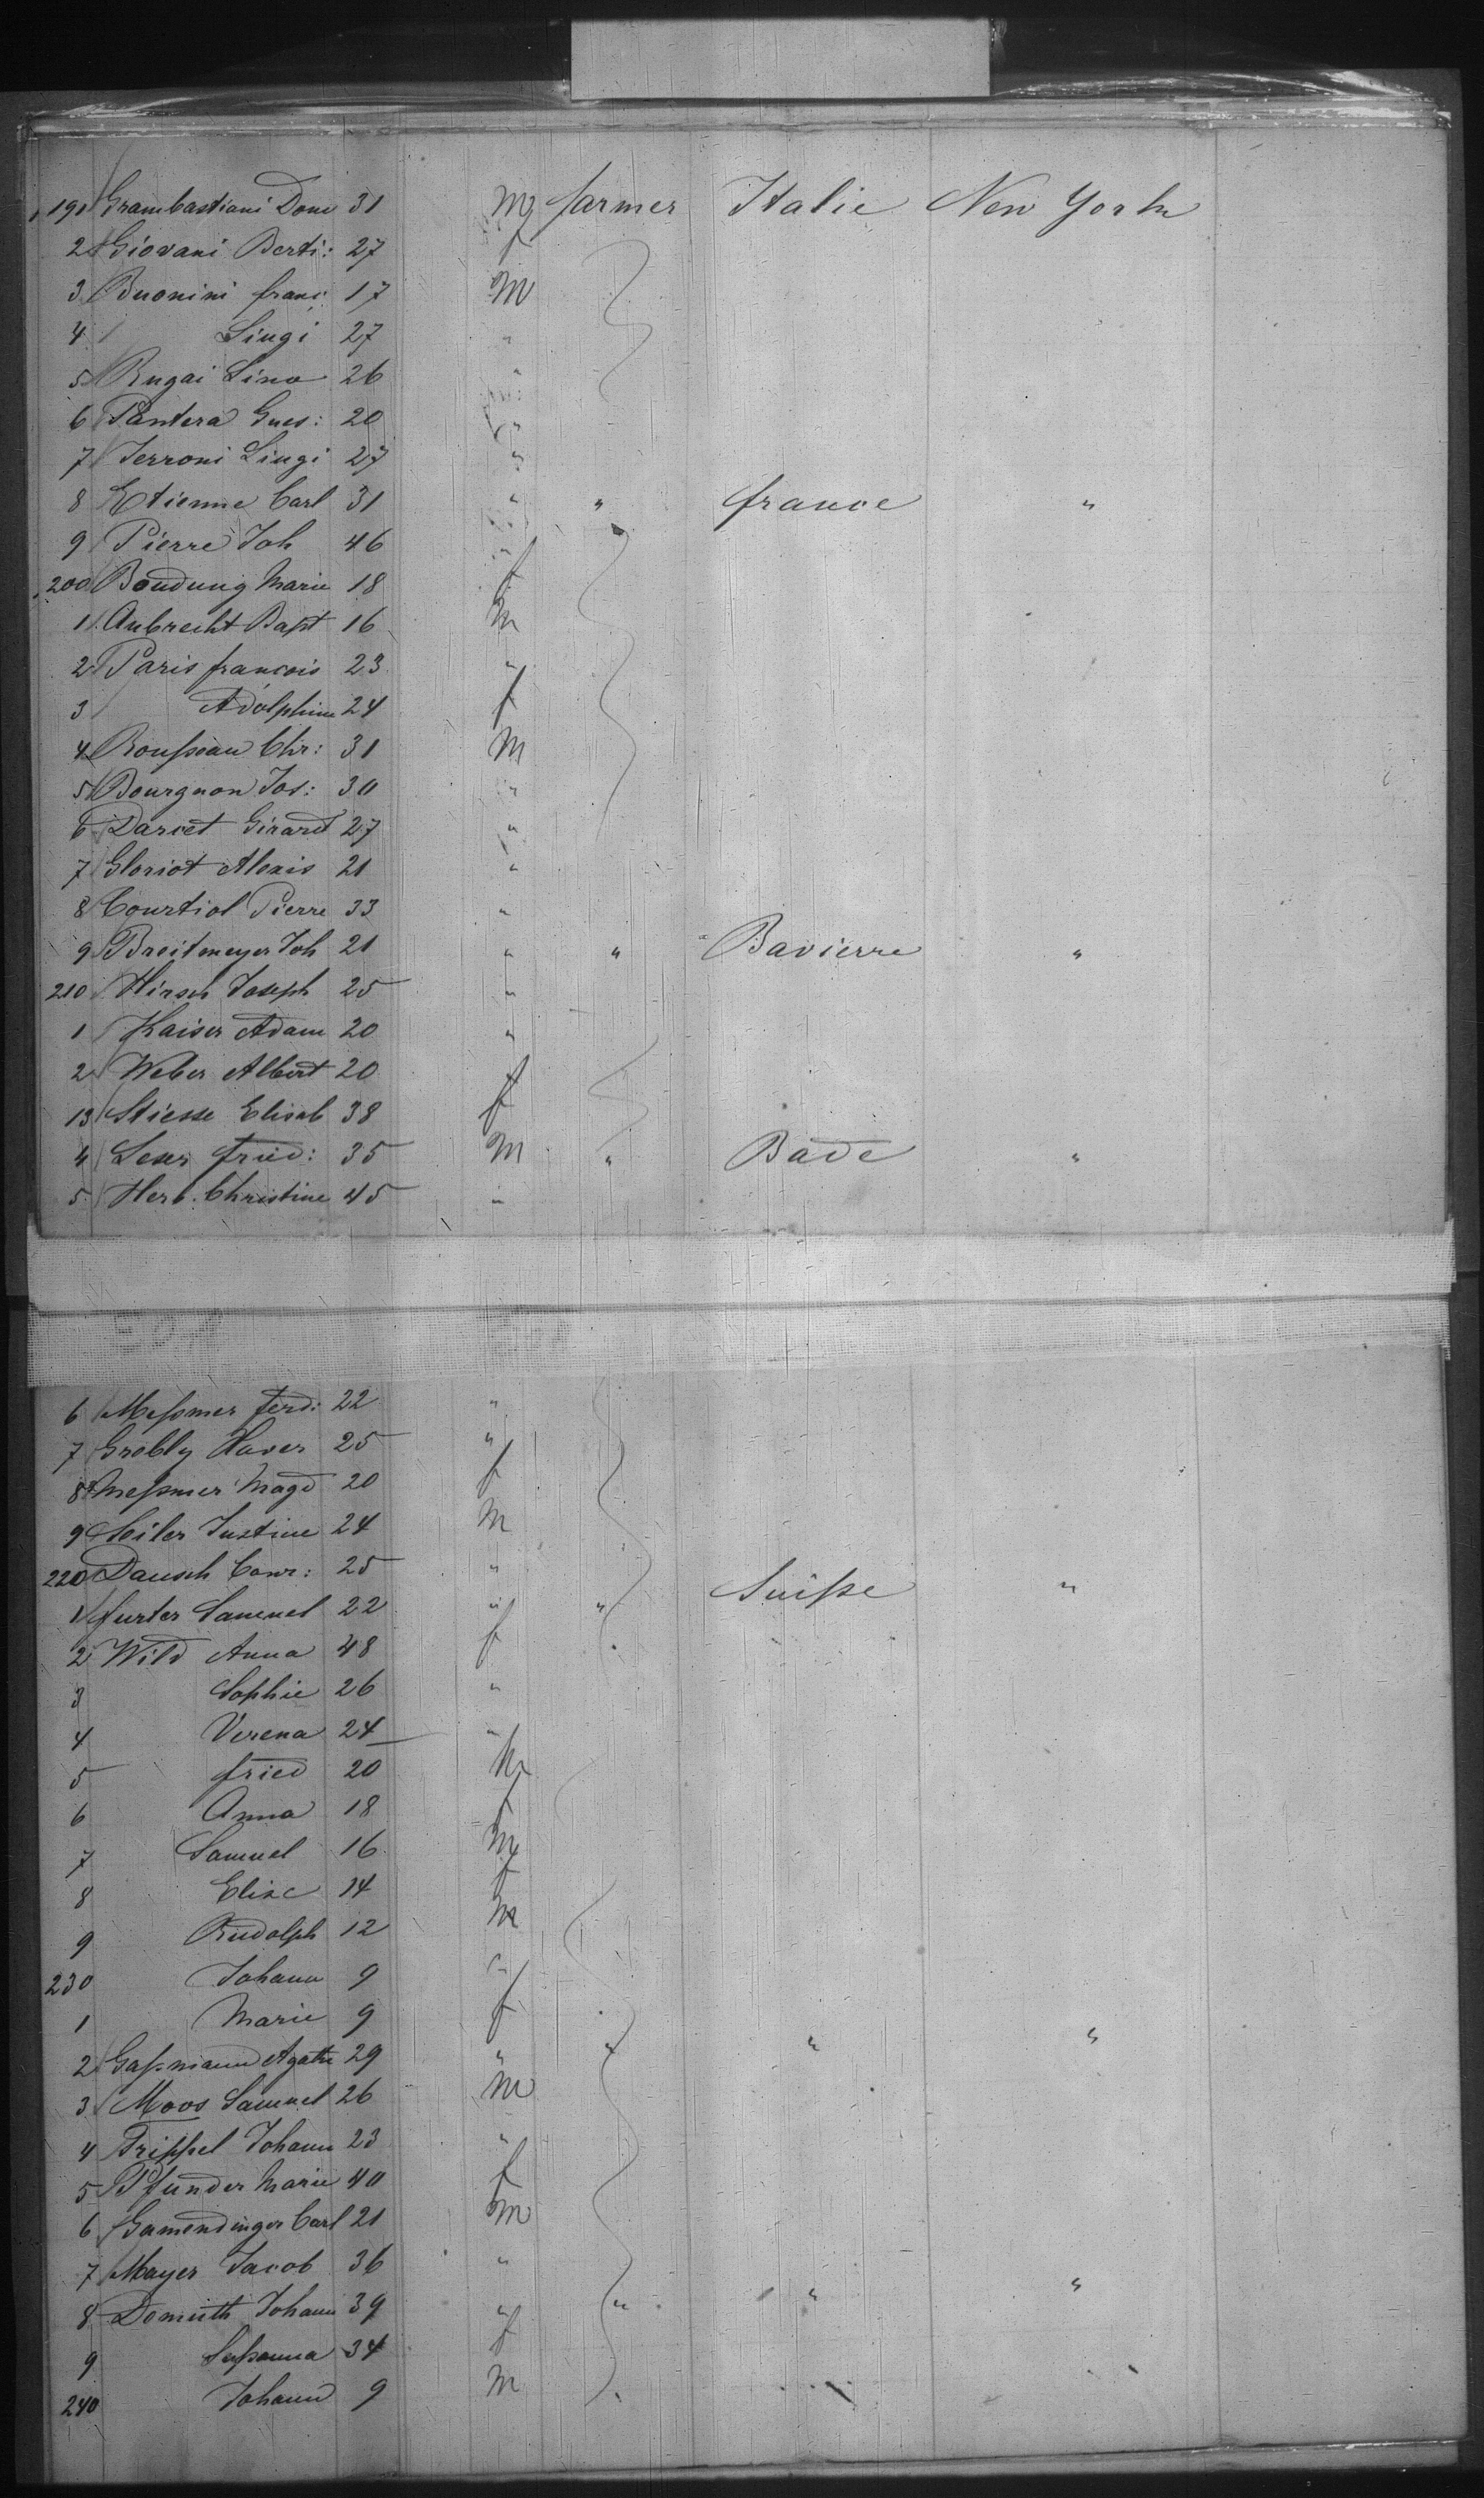 191 Grambastiani Dom 31 M farmer Italie New York
2 Giovani Berti: 27 f
3 Buonini franc 17 M
4 Luigi 27 "
5 Rugai Lino 26 "
6 Pantera Gues: 20 "
7 Ferroni Luigi 27 "
8 Etienne Carl 31 " " france "
9 Pierre Joh 46 "
200 Boudung Marie 18 f
1 Aubrecht Bapt 16 M
2 Paris francois 23 "
3 Adolphine 24 f
4 Rousseau Chr: 31 M
5 Bourgnon Jos: 30 "
6 Darcet Girard 27 "
7 Gloriot Alexis 21 "
8 Courtiol Pierre 33 "
9 Breitmeyer Joh 21 " " Bavierre "
210 Hirsch Joseph 25 "
1 Kaiser Adam 20 "
2 Weber Albert 20
13 Stiesse Elisab 38 f
4 Leser fried: 35 M " Bade "
5 Herb Christine 45 "
6 Messmer ferd: 22 "
7 Grebly Xaver 25 "
8 Messmer Magd 20 f
9 Seiler Justine 24 M
220 Dausch Conr: 25 "
1 furter Samuel 22 " " Suisse "
2 Wild Anna 48 f
3 Sophie 26 "
4 Verena 24 "
5 fried 20 M
6 Anna 18 f
7 Samuel 16 M
8 Elise 14 f
9 Rudolph 12 M
230 Johann 9 "
1 Marie 9 f
2 Gassmann Agathe 29 " " " "
3 Moos Samuel 26 M
4 Trippel Johann 23 "
5 Pfunder Marie 40 f
6 Gamendinger Carl 21 M
7 Mayer Jacob 36 "
8 Domuth Johann 39 " " " "
9 Sussanna 34 f
240 Johann 9 M